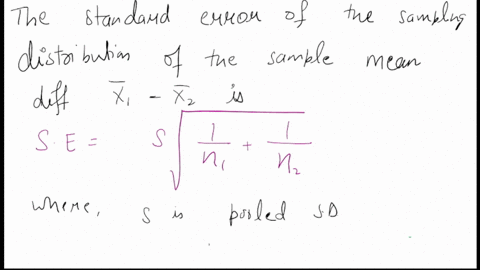 The standard error of the sampling
distribution of the sample mean
diff X̄₁ - X̄₂ is
S.E = S √(1/n₁ + 1/n₂)
where, s is pooled SD